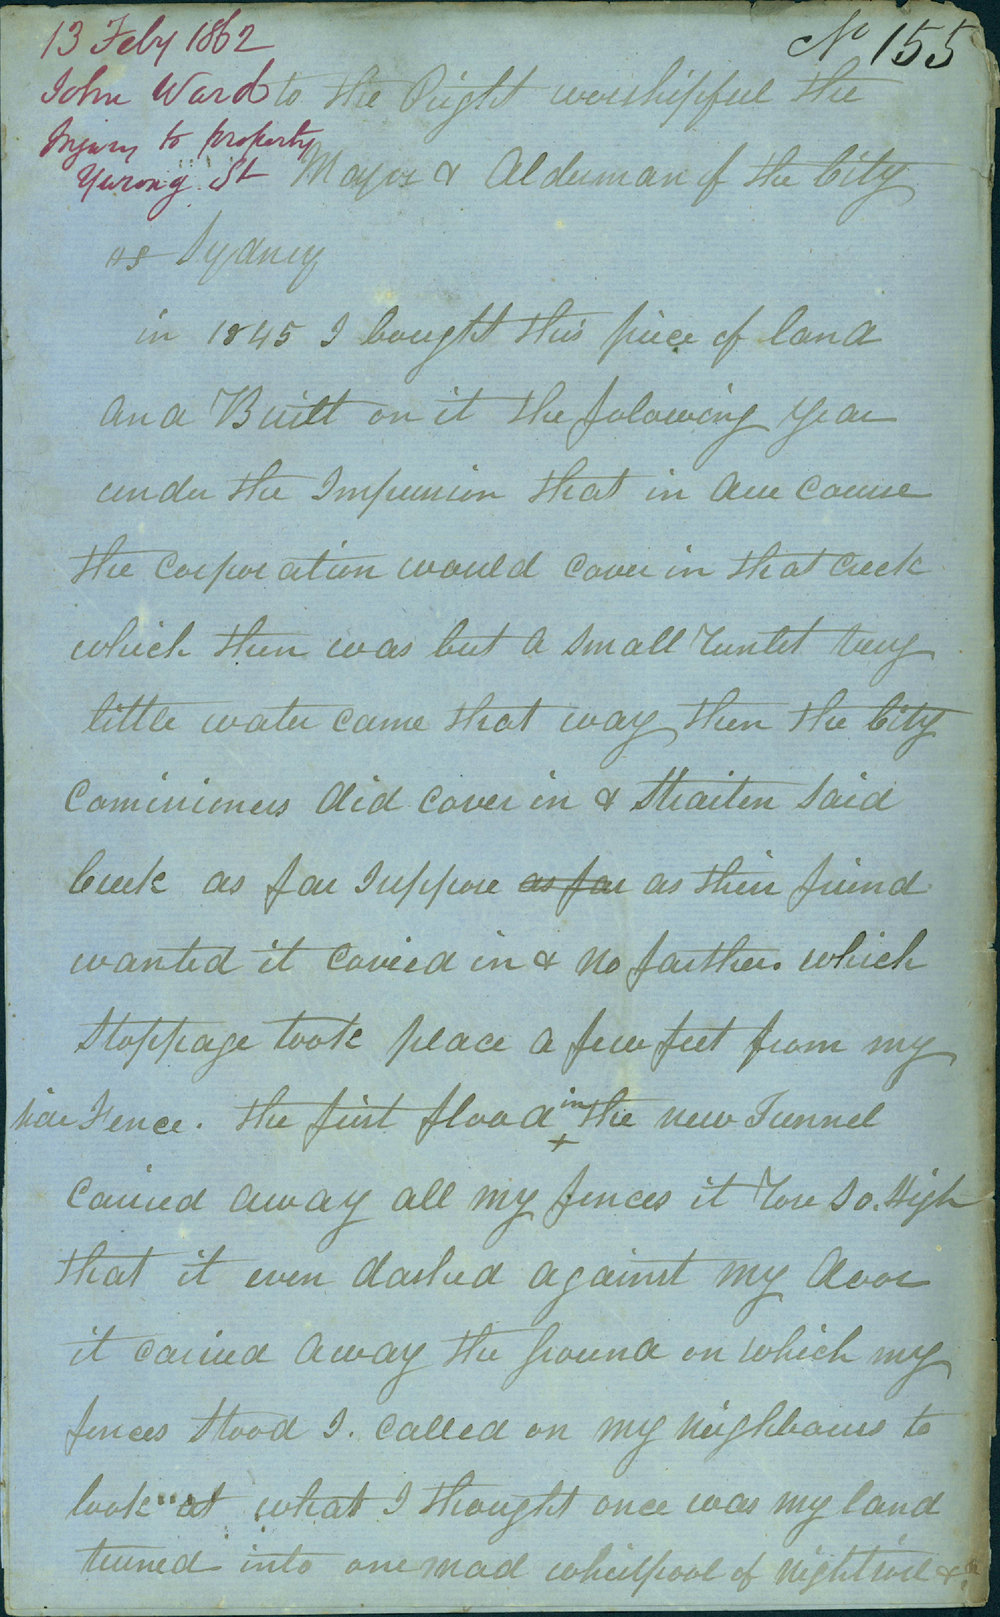 13 Feby 1862
No 155
John Ward
Injury to property
Yurong St
to the Right worshipful the
Mayor & Alderman of the City
of Sydney
in 1845 I bought this piece of land
and Built on it the folowing year
under the Impression that in due course
the corporation would cover in that creek
which then was but a small runlet very
little water came that way then the City
Commissioners did cover in & straiten said
Creek as far I suppose as far as their friend
wanted it covered in & no farther. which
stoppage took place a few feet from my
side Fence. the first flood in the new Tunnel
carried away all my fences it rose so. High
that it even dashed against my door
it carried away the ground on which my
fences stood I. called on my neighbours to
look at what I thought once was my land
turned into one mad whirlpool of nightsoil &